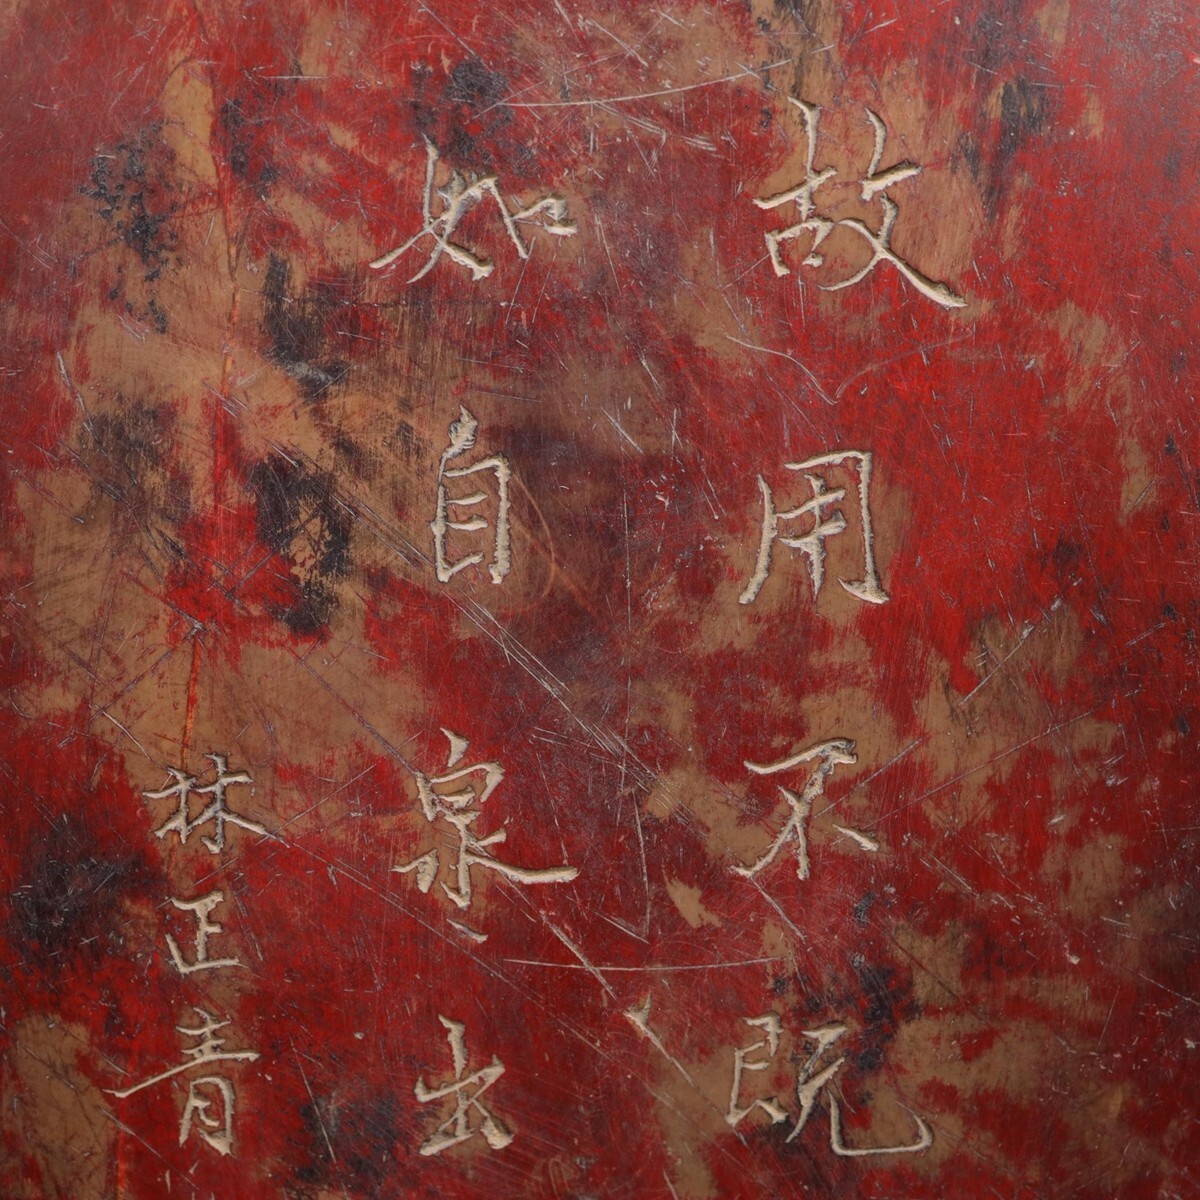 故用不既
如自泉出
林正青